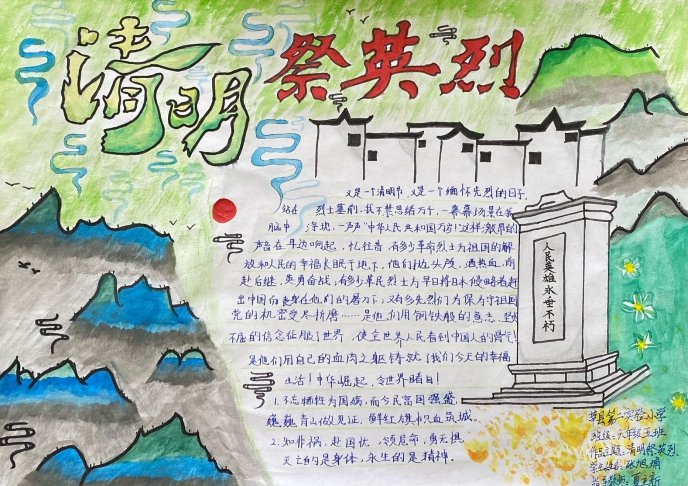 清明祭英烈
又是一个清明节,又是一个缅怀先烈的日子,
站在烈士墓前,我不禁思绪万千,一幕幕场景在我
脑中浮现,一声声"中华人民共和国万岁!"这样激昂的
声音在耳边响起,忆往昔,有多少革命烈士为祖国的解
放和人民的幸福长眠于地下,他们抛头颅,洒热血,前
赴后继,英勇奋战,有多少革民烈士为早日将日本侵略者赶
出中国而丧身在他们的屠刀下,又有多少先烈们为保守祖国
党的机密受尽折磨……是他们用钢铁般的意志,坚
不屈的信念征服了世界,使全世界人民看到中国人的骨气!
是他们用自己的血肉之躯铸就了我们今天的幸福
生活!中华崛起,令世界瞩目!
1.不忘牺牲为国殇,而今民富国强盛
巍巍青山做见证,鲜红旗帜血筑城。
2.知非祸,赴国忧,领启命,勇无惧
灭亡的是身体,永生的是精神。
人民英雄永垂不朽
莘县第二实验小学
班级:六年级五班
作品主题:清明祭英烈
学生姓名:张旭